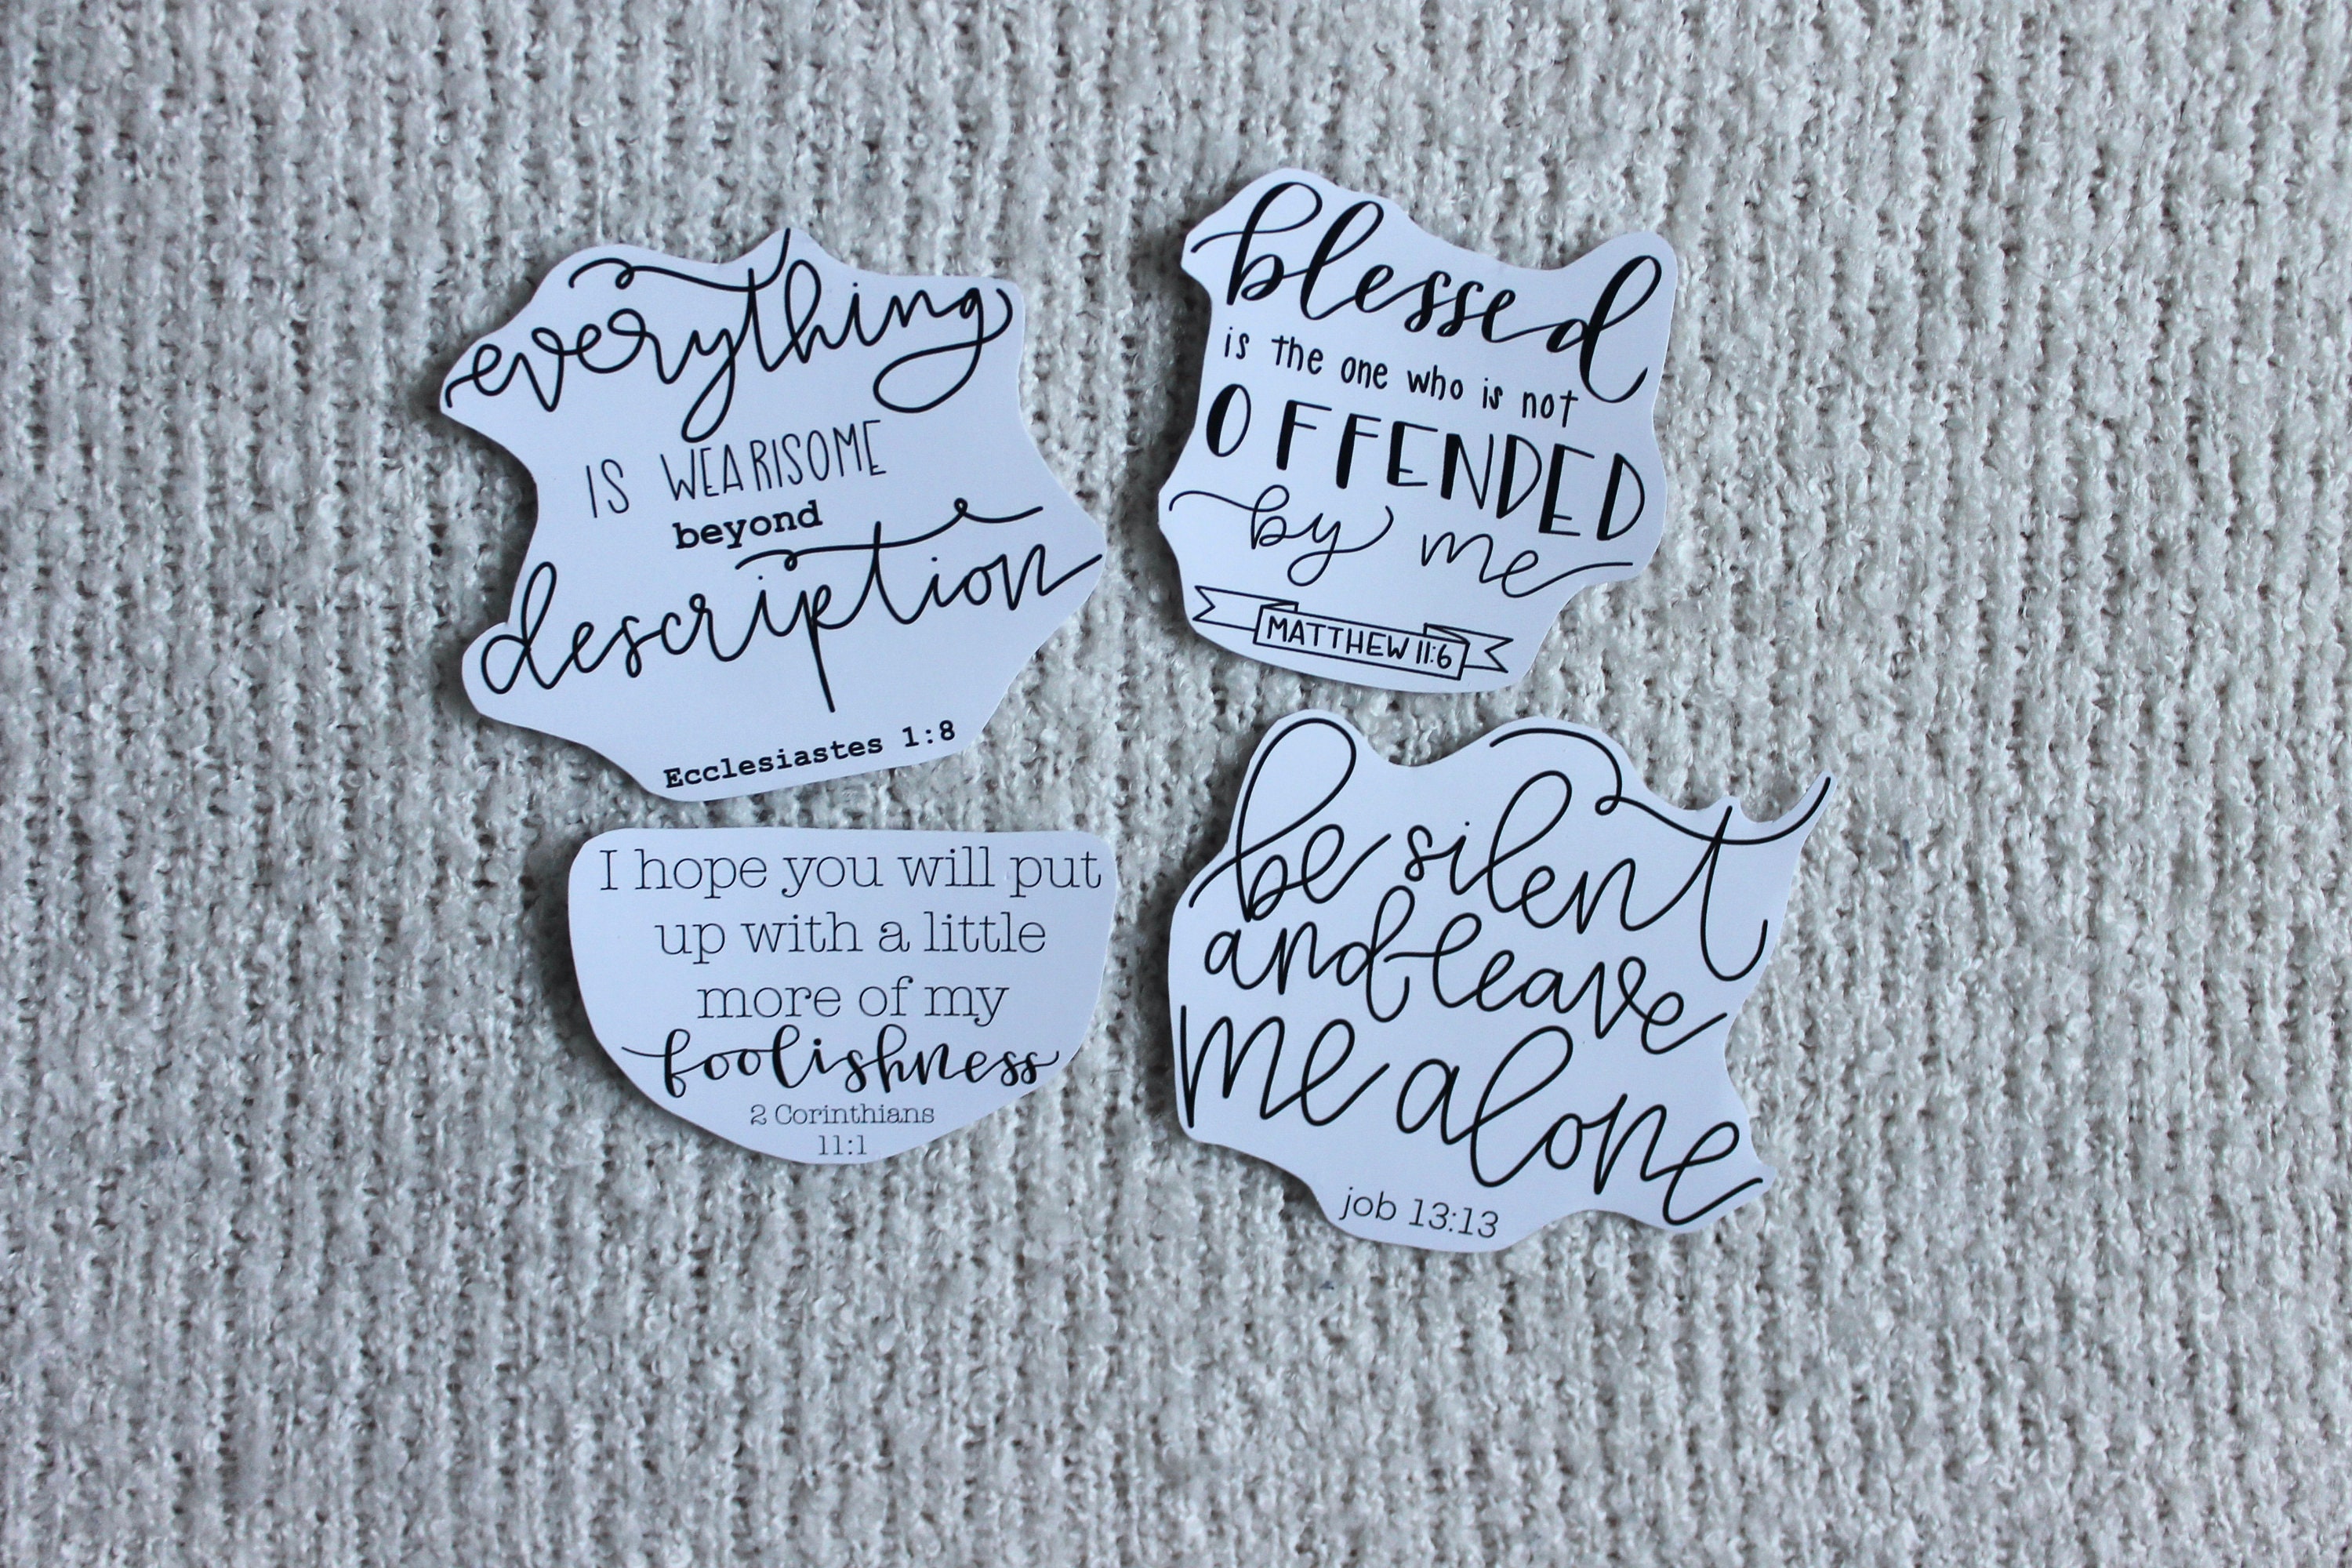 everything
IS WEARISOME
beyond
description
Ecclesiastes 1:8
blessed
is the one who is not
OFFENDED
by me
MATTHEW 11:6
I hope you will put
up with a little
more of my
foolishness
2 Corinthians
11:1
be silent
and leave
me alone
job 13:13